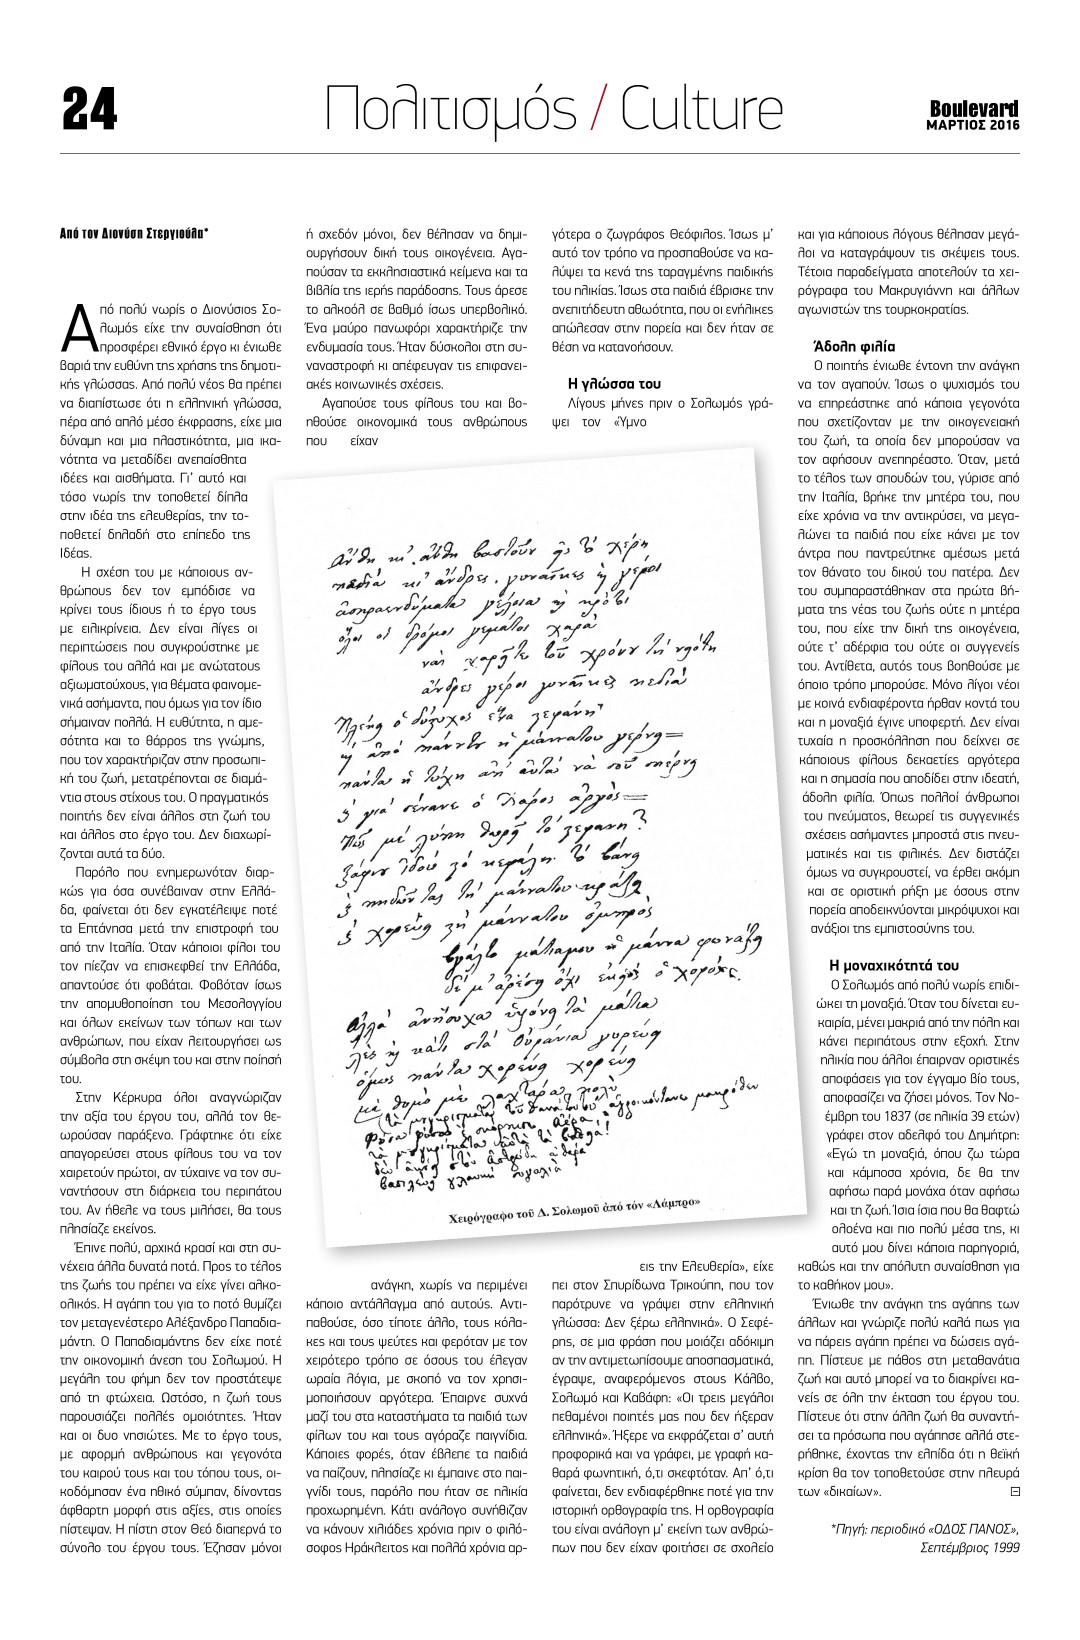 24
Πολιτισμός / Culture
Boulevard
ΜΑΡΤΙΟΣ 2016
Από τον Διονύση Στεργιούλα*
Από πολύ νωρίς ο Διονύσιος Σο-
λωμός είχε την συναίσθηση ότι
προσφέρει εθνικό έργο κι ένιωθε
βαριά την ευθύνη της χρήσης της δημοτι-
κής γλώσσας. Από πολύ νέος θα πρέπει
να διαπίστωσε ότι η ελληνική γλώσσα,
πέρα από απλό μέσο έκφρασης, είχε μια
δύναμη και μια πλαστικότητα, μια ικα-
νότητα να μεταδίδει ανεπαίσθητα
ιδέες και αισθήματα. Γι’ αυτό και
τόσο νωρίς την τοποθετεί δίπλα
στην ιδέα της ελευθερίας, την το-
ποθετεί δηλαδή στο επίπεδο της
Ιδέας.
Η σχέση του με κάποιους αν-
θρώπους δεν τον εμπόδισε να
κρίνει τους ίδιους ή το έργο τους
με ειλικρίνεια. Δεν είναι λίγες οι
περιπτώσεις που συγκρούστηκε με
φίλους του αλλά και με ανώτατους
αξιωματούχους, για θέματα φαινομε-
νικά ασήμαντα, που όμως για τον ίδιο
σήμαιναν πολλά. Η ευθύτητα, η αμε-
σότητα και το θάρρος της γνώμης,
που τον χαρακτήριζαν στην προσωπι-
κή του ζωή, μετατρέπονται σε διαμά-
ντια στους στίχους του. Ο πραγματικός
ποιητής δεν είναι άλλος στη ζωή του
και άλλος στο έργο του. Δεν διαχωρί-
ζονται αυτά τα δύο.
Παρόλο που ενημερωνόταν διαρ-
κώς για όσα συνέβαιναν στην Ελλά-
δα, φαίνεται ότι δεν εγκατέλειψε ποτέ
τα Επτάνησα μετά την επιστροφή του
από την Ιταλία. Όταν κάποιοι φίλοι του
τον πίεζαν να επισκεφθεί την Ελλάδα,
απαντούσε ότι φοβάται. Φοβόταν ίσως
την απομυθοποίηση του Μεσολογγίου
και όλων εκείνων των τόπων και των
ανθρώπων, που είχαν λειτουργήσει ως
σύμβολα στη σκέψη του και στην ποίησή
του.
Στην Κέρκυρα όλοι αναγνώριζαν
την αξία του έργου του, αλλά τον θε-
ωρούσαν παράξενο. Γράφτηκε ότι είχε
απαγορεύσει στους φίλους του να τον
χαιρετούν πρώτοι, αν τύχαινε να τον συ-
ναντήσουν στη διάρκεια του περιπάτου
του. Αν ήθελε να τους μιλήσει, θα τους
πλησίαζε εκείνος.
Έπινε πολύ, αρχικά κρασί και στη συ-
νέχεια άλλα δυνατά ποτά. Προς το τέλος
της ζωής του πρέπει να είχε γίνει αλκο-
ολικός. Η αγάπη του για το ποτό θυμίζει
τον μεταγενέστερο Αλέξανδρο Παπαδια-
μάντη. Ο Παπαδιαμάντης δεν είχε ποτέ
την οικονομική άνεση του Σολωμού. Η
μεγάλη του φήμη δεν τον προστάτεψε
από τη φτώχεια. Ωστόσο, η ζωή τους
παρουσιάζει πολλές ομοιότητες. Ήταν
και οι δυο νησιώτες. Με το έργο τους,
με αφορμή ανθρώπους και γεγονότα
του καιρού τους και του τόπου τους, οι-
κοδόμησαν ένα ηθικό σύμπαν, δίνοντας
άφθαρτη μορφή στις αξίες, στις οποίες
πίστεψαν. Η πίστη στον Θεό διαπερνά το
σύνολο του έργου τους. Έζησαν μόνοι
ή σχεδόν μόνοι, δεν θέλησαν να δημι-
ουργήσουν δική τους οικογένεια. Αγα-
πούσαν τα εκκλησιαστικά κείμενα και τα
βιβλία της ιερής παράδοσης. Τους άρεσε
το αλκοόλ σε βαθμό ίσως υπερβολικό.
Ένα μαύρο πανωφόρι χαρακτήριζε την
ενδυμασία τους. Ήταν δύσκολοι στη συ-
ναναστροφή κι απέφευγαν τις επιφανει-
ακές κοινωνικές σχέσεις.
Αγαπούσε τους φίλους του και βο-
ηθούσε οικονομικά τους ανθρώπους
που είχαν
ανάγκη, χωρίς να περιμένει
κάποιο αντάλλαγμα από αυτούς. Αντι-
παθούσε, όσο τίποτε άλλο, τους κόλα-
κες και τους ψεύτες και φερόταν με τον
χειρότερο τρόπο σε όσους του έλεγαν
ωραία λόγια, με σκοπό να τον χρησι-
μοποιήσουν αργότερα. Έπαιρνε συχνά
μαζί του στα καταστήματα τα παιδιά των
φίλων του και τους αγόραζε παιγνίδια.
Κάποιες φορές, όταν έβλεπε τα παιδιά
να παίζουν, πλησίαζε κι έμπαινε στο παι-
γνίδι τους, παρόλο που ήταν σε ηλικία
προχωρημένη. Κάτι ανάλογο συνήθιζαν
να κάνουν χιλιάδες χρόνια πριν ο φιλό-
σοφος Ηράκλειτος και πολλά χρόνια αρ-
γότερα ο ζωγράφος Θεόφιλος. Ίσως μ’
αυτό τον τρόπο να προσπαθούσε να κα-
λύψει τα κενά της ταραγμένης παιδικής
του ηλικίας. Ίσως στα παιδιά έβρισκε την
ανεπιτήδευτη αθωότητα, που οι ενήλικες
απώλεσαν στην πορεία και δεν ήταν σε
θέση να κατανοήσουν.
Η γλώσσα του
Λίγους μήνες πριν ο Σολωμός γρά-
ψει τον «Ύμνο
Χειρόγραφο τοῦ Δ. Σολωμοῦ ἀπό τόν «Λάμπρο»
εις την Ελευθερία», είχε
πει στον Σπυρίδωνα Τρικούπη, που τον
παρότρυνε να γράψει στην ελληνική
γλώσσα: Δεν ξέρω ελληνικά». Ο Σεφέ-
ρης, σε μια φράση που μοιάζει αδόκιμη
αν την αντιμετωπίσουμε αποσπασματικά,
έγραψε, αναφερόμενος στους Κάλβο,
Σολωμό και Καβάφη: «Οι τρεις μεγάλοι
πεθαμένοι ποιητές μας που δεν ήξεραν
ελληνικά». Ήξερε να εκφράζεται σ’ αυτή
προφορικά και να γράφει, με γραφή κα-
θαρά φωνητική, ό,τι σκεφτόταν. Απ’ ό,τι
φαίνεται, δεν ενδιαφέρθηκε ποτέ για την
ιστορική ορθογραφία της. Η ορθογραφία
του είναι ανάλογη μ’ εκείνη των ανθρώ-
πων που δεν είχαν φοιτήσει σε σχολείο
και για κάποιους λόγους θέλησαν μεγά-
λοι να καταγράψουν τις σκέψεις τους.
Τέτοια παραδείγματα αποτελούν τα χει-
ρόγραφα του Μακρυγιάννη και άλλων
αγωνιστών της τουρκοκρατίας.
Άδολη φιλία
Ο ποιητής ένιωθε έντονη την ανάγκη
να τον αγαπούν. Ίσως ο ψυχισμός του
να επηρεάστηκε από κάποια γεγονότα
που σχετίζονταν με την οικογενειακή
του ζωή, τα οποία δεν μπορούσαν να
τον αφήσουν ανεπηρέαστο. Όταν, μετά
το τέλος των σπουδών του, γύρισε από
την Ιταλία, βρήκε την μητέρα του, που
είχε χρόνια να την αντικρύσει, να μεγα-
λώνει τα παιδιά που είχε κάνει με τον
άντρα που παντρεύτηκε αμέσως μετά
τον θάνατο του δικού του πατέρα. Δεν
του συμπαραστάθηκαν στα πρώτα βή-
ματα της νέας του ζωής ούτε η μητέρα
του, που είχε την δική της οικογένεια,
ούτε τ’ αδέρφια του ούτε οι συγγενείς
του. Αντίθετα, αυτός τους βοηθούσε με
όποιο τρόπο μπορούσε. Μόνο λίγοι νέοι
με κοινά ενδιαφέροντα ήρθαν κοντά του
και η μοναξιά έγινε υποφερτή. Δεν είναι
τυχαία η προσκόλληση που δείχνει σε
κάποιους φίλους δεκαετίες αργότερα
και η σημασία που αποδίδει στην ιδεατή,
άδολη φιλία. Όπως πολλοί άνθρωποι
του πνεύματος, θεωρεί τις συγγενικές
σχέσεις ασήμαντες μπροστά στις πνευ-
ματικές και τις φιλικές. Δεν διστάζει
όμως να συγκρουστεί, να έρθει ακόμη
και σε οριστική ρήξη με όσους στην
πορεία αποδεικνύονται μικρόψυχοι και
ανάξιοι της εμπιστοσύνης του.
Η μοναχικότητά του
Ο Σολωμός από πολύ νωρίς επιδι-
ώκει τη μοναξιά. Όταν του δίνεται ευ-
καιρία, μένει μακριά από την πόλη και
κάνει περιπάτους στην εξοχή. Στην
ηλικία που άλλοι έπαιρναν οριστικές
αποφάσεις για τον έγγαμο βίο τους,
αποφασίζει να ζήσει μόνος. Τον Νο-
έμβρη του 1837 (σε ηλικία 39 ετών)
γράφει στον αδελφό του Δημήτρη:
«Εγώ τη μοναξιά, όπου ζω τώρα
και κάμποσα χρόνια, δε θα την
αφήσω παρά μονάχα όταν αφήσω
και τη ζωή. Ίσια ίσια που θα θαφτώ
ολοένα και πιο πολύ μέσα της, κι
αυτό μου δίνει κάποια παρηγοριά,
καθώς και την απόλυτη συναίσθηση για
το καθήκον μου».
Ένιωθε την ανάγκη της αγάπης των
άλλων και γνώριζε πολύ καλά πως για
να πάρεις αγάπη πρέπει να δώσεις αγά-
πη. Πίστευε με πάθος στη μεταθανάτια
ζωή και αυτό μπορεί να το διακρίνει κα-
νείς σε όλη την έκταση του έργου του.
Πίστευε ότι στην άλλη ζωή θα συναντή-
σει τα πρόσωπα που αγάπησε αλλά στε-
ρήθηκε, έχοντας την ελπίδα ότι η θεϊκή
κρίση θα τον τοποθετούσε στην πλευρά
των «δικαίων».
*Πηγή: περιοδικό «ΟΔΟΣ ΠΑΝΟΣ»,
Σεπτέμβριος 1999